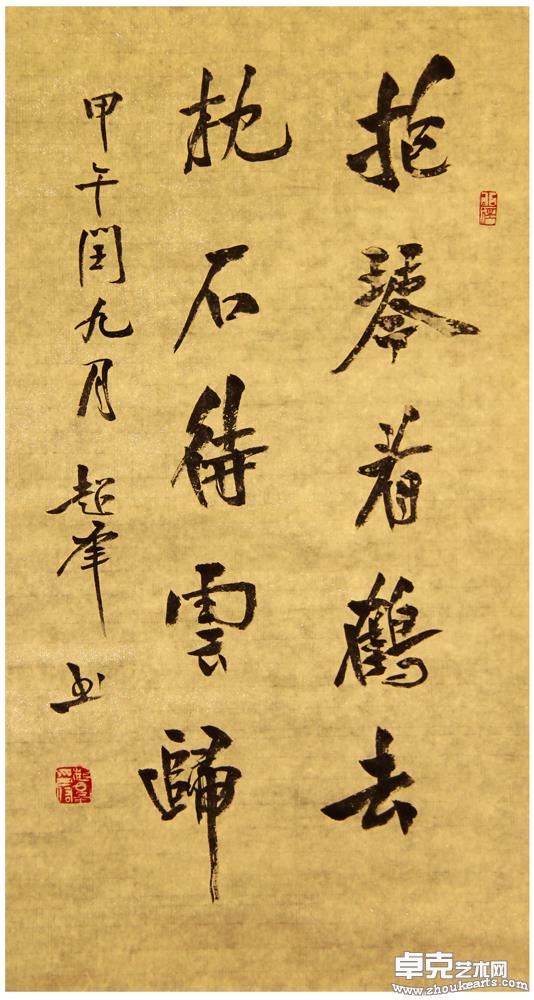 抱琴看鶴去
枕石待雲歸
甲午閏九月 超 书
卓克艺术网
www.zhoukearts.com